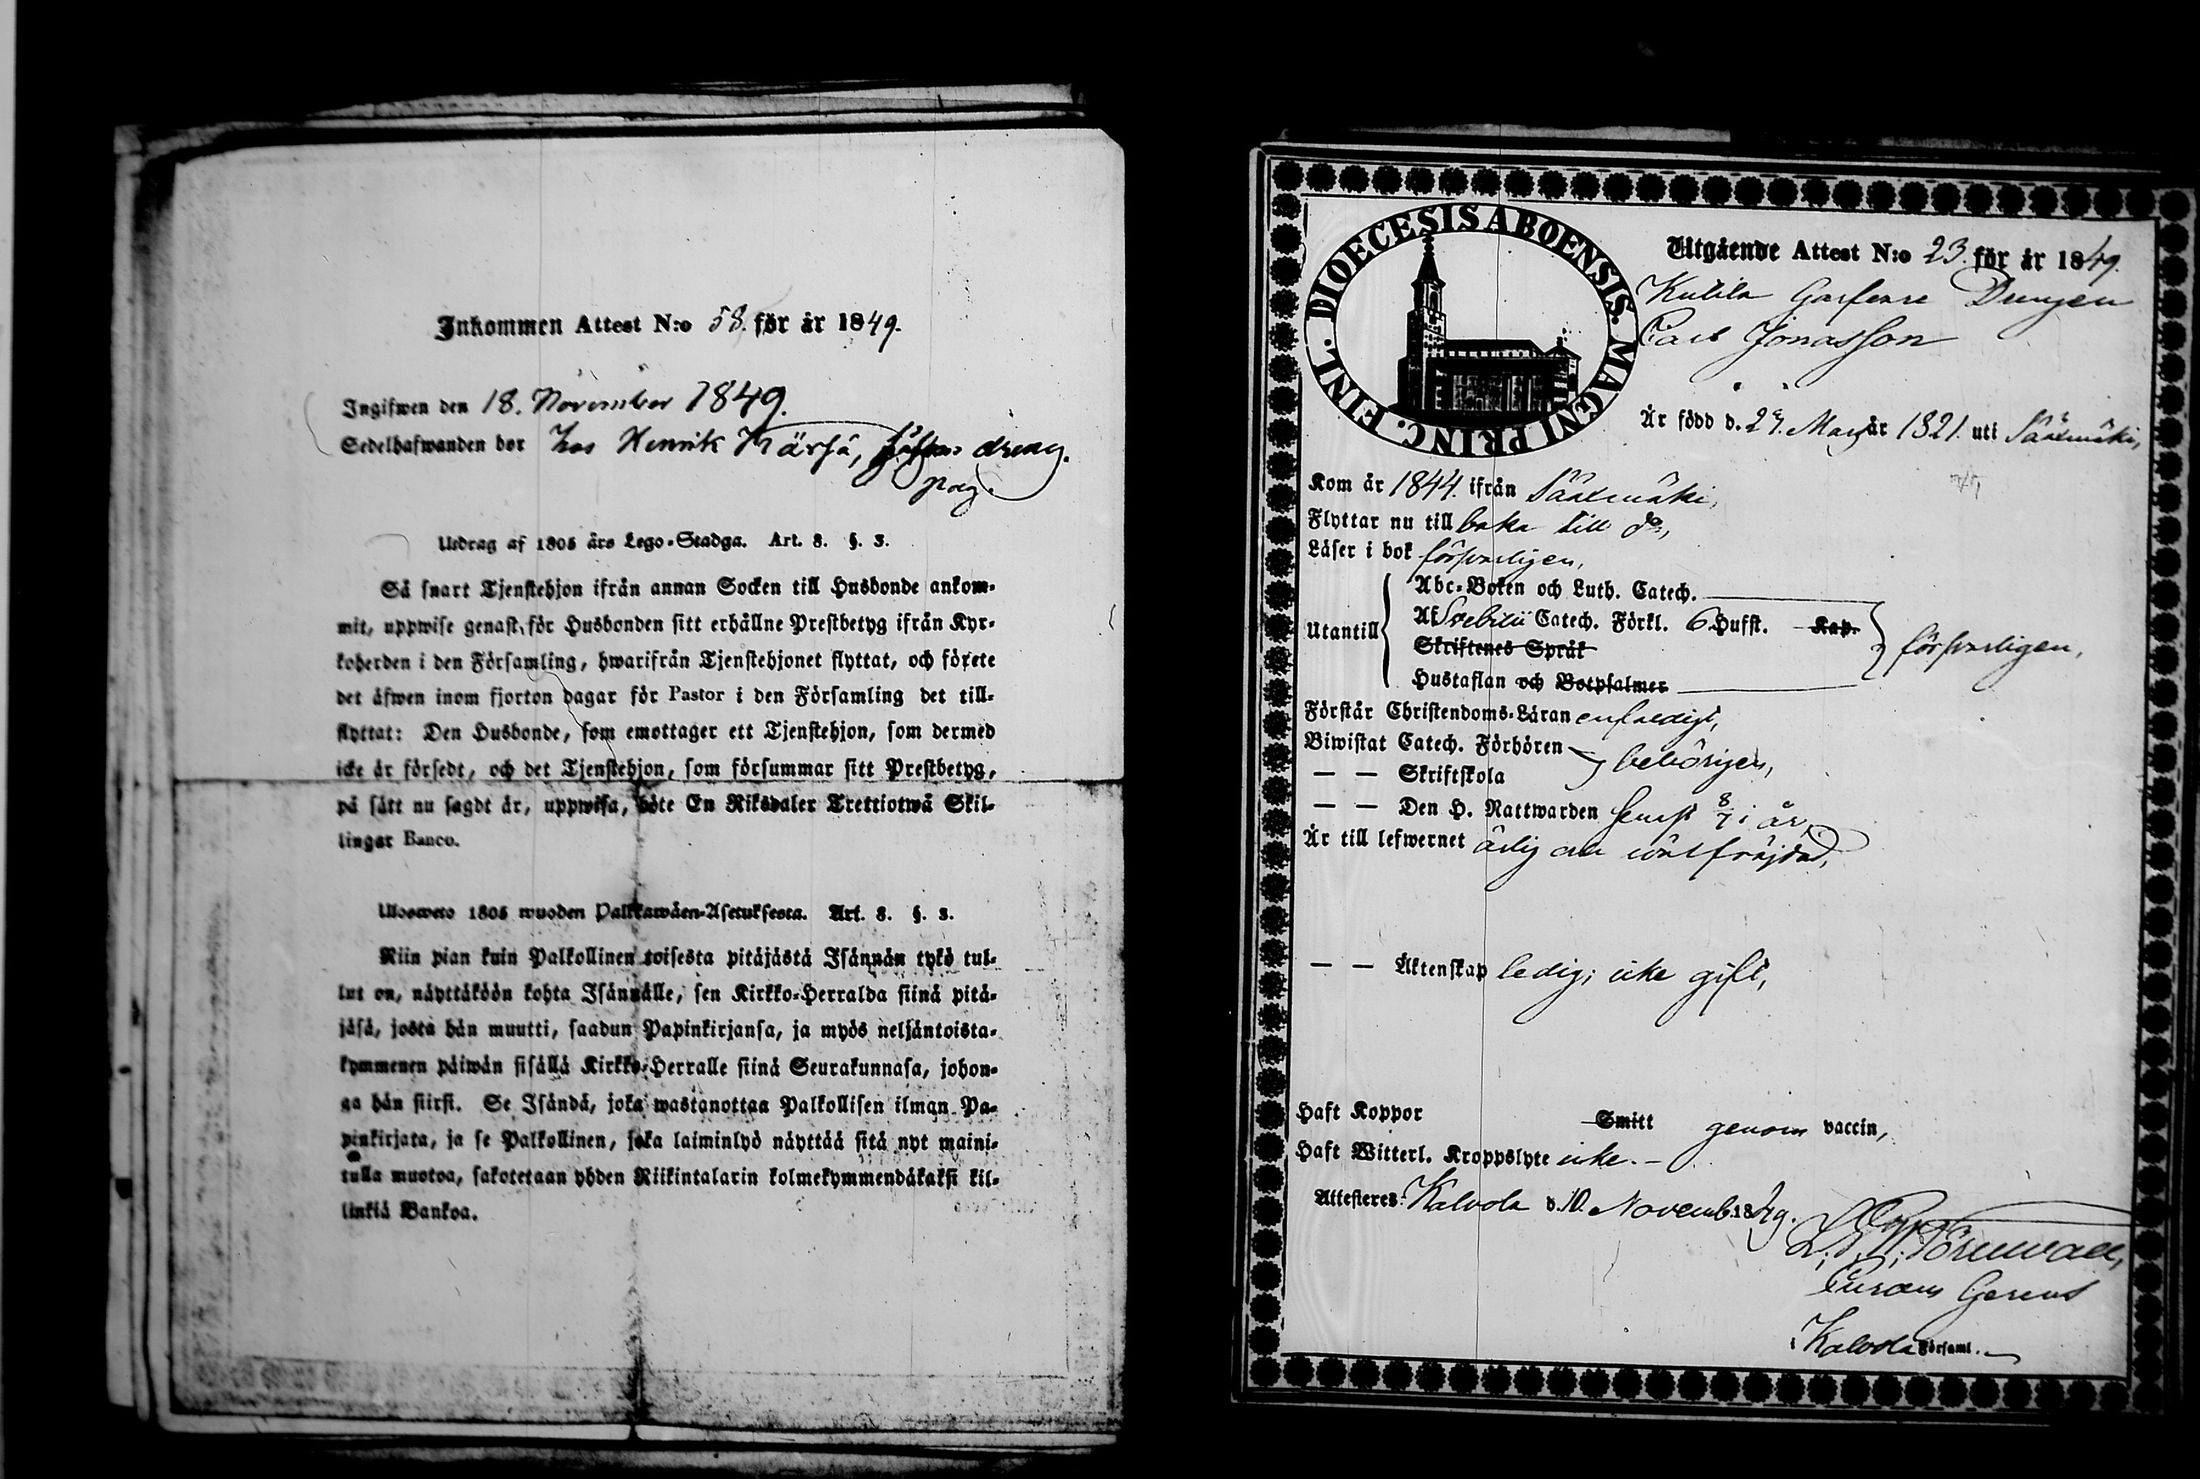 Inkommen Attest N:o 58. för år 1849.
Ingifwen den 18. November 1849.
Sedelhafwanden bor hos Henrik dreng.
Utdrag af 1805 års Lego-Stadga. Art. 8. §. 3.
Så snart Tjenstehjon ifrån annan Socken till Husbonde ankom-
mit, uppwise genast, för Husbonden sitt erhållne Prestbetyg ifrån Kyr-
koherden i den Församling, hwarifrån Tjenstehjonet flyttat, och förete
det äfwen inom fjorton dagar för Pastor i den Församling det till-
flyttat: Den Husbonde, som emottager ett Tjenstehjon, som dermed
icke är försedt, och det Tjenstehjon, som försummar sitt Prestbetyg,
på sätt nu sagdt är, uppwisa, böte En Riksdaler Trettiotwå Skil-
lingar Banco.
Ulosweto 1805 wuoden Palkkawäen-Asetuksesta. Art. 8. §. 3.
Niin pian kuin Palkollinen toisesta pitäjästä Isännän tykö tul-
lut on, näyttäköön kohta Isännälle, sen Kirkko-Herralda siinä pitä-
jäsä, josta hän muutti, saadun Papinkirjansa, ja myös neljäntoista-
kymmenen päiwän sisällä Kirkko-Herralle siinä Seurakunnasa, johon-
ga hän siirsi. Se Isändä, joka wastanottaa Palkollisen ilman Pa-
pinkirjata, ja se Palkollinen, joka laiminlyö näyttää sitä nyt maini-
tulla muotoa, sakotetaan yhden Riikintalarin kolmekymmendäkaksi kil-
linkiä Bankoa.
DIOECESIS ABOENSIS. MAGNI PRINC. FINL.
Utgående Attest N:o 23. för år 1849.
Drengen
Carl Jonasson
Är född d. Mars år 1821. uti Sääxmäki,
Kom år 1844. ifrån Sääxmäki,
Flyttar nu till baka till do,
Läser i bok försvarligen,
Utantill
Abc-Boken och Luth. Catech.
Af Svebilii Catech. Förkl. 6. Hufst. Kap.
Skriftenes Språk
Hustaflan och Botpsalmer
försvarligen,
Förstår Christendoms-Läran enfaldigt,
Biwistat Catech. Förhören
— — Skriftskola
behörigen,
— — Den H. Nattwarden senast 8/7 i år,
Är till lefwernet ärlig och wälfräjdad,
— — Äktenskap ledig; icke gift,
Haft Koppor Smitt genom vaccin,
Haft Witterl. Kroppslyte icke. —
Attesteres: Kalvola d. 10. Novemb. 1849.
Curam Gerens
i Kalvola Församl.